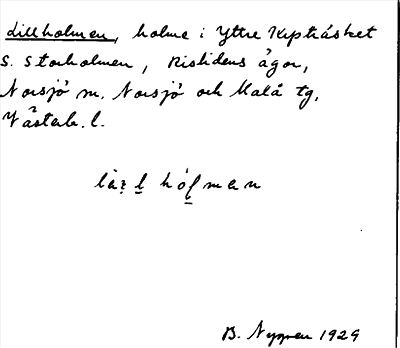 Lillholmen, holme i Yttre Kypträsket
S. Storholmen, Risliden ägor,
Norsjö sn. Norsjö och Malå tg,
Västerb. l.
B. Nygren 1929